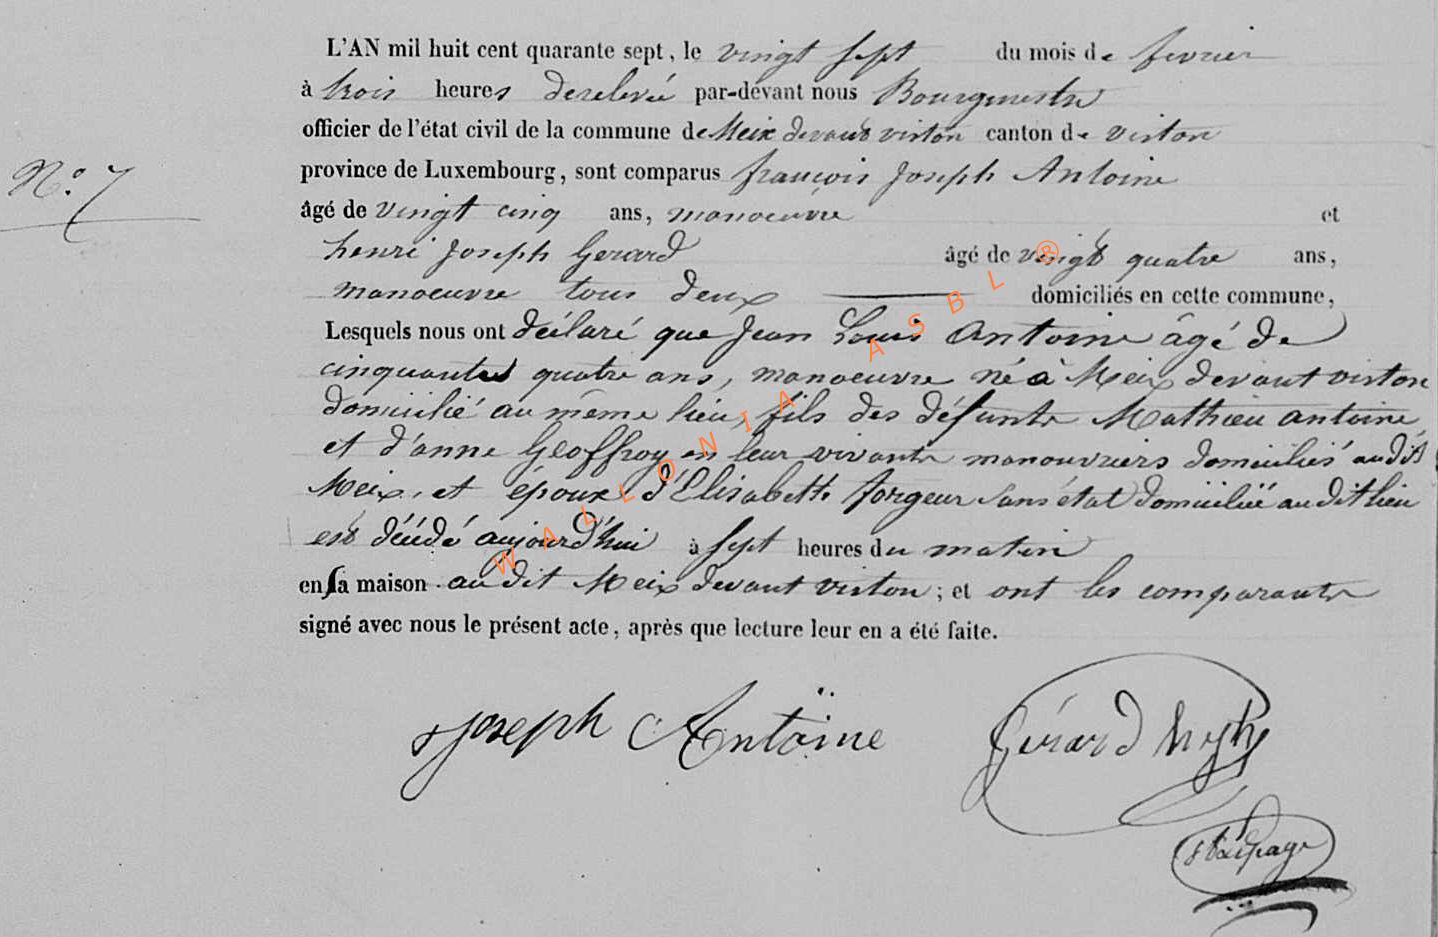 L'AN mil huit cent quarante sept, le vingt sept du mois de fevrier
à trois heures derelevée par-devant nous Bourgmestre
officier de l'état civil de la commune de Meix devant virton canton de virton
N.º 7
province de Luxembourg, sont comparus françois Joseph Antoine
âgé de vingt cinq ans, manoeuvre et
henri Joseph Gerard âgé de vingt quatre ans,
manoeuvre tous deux domiciliés en cette commune,
Lesquels nous ont déclaré que Jean Louis Antoine âgé de
cinquante quatre ans, manoeuvre né à Meix devant virton
domicilié au même lieu, fils des défunts Mathieu antoine
et d'anne Geoffroy en leur vivants manouvriers domiciliés audit
Meix, et époux d'Elisabeth forgeur sans état domiciliée audit lieu
est décédé aujourd'hui à sept heures du matin
en sa maison audit Meix devant virton ; et ont les comparants
signé avec nous le présent acte, après que lecture leur en a été faite.
Joseph Antoine Gérard
WALLONIA ASBL ®